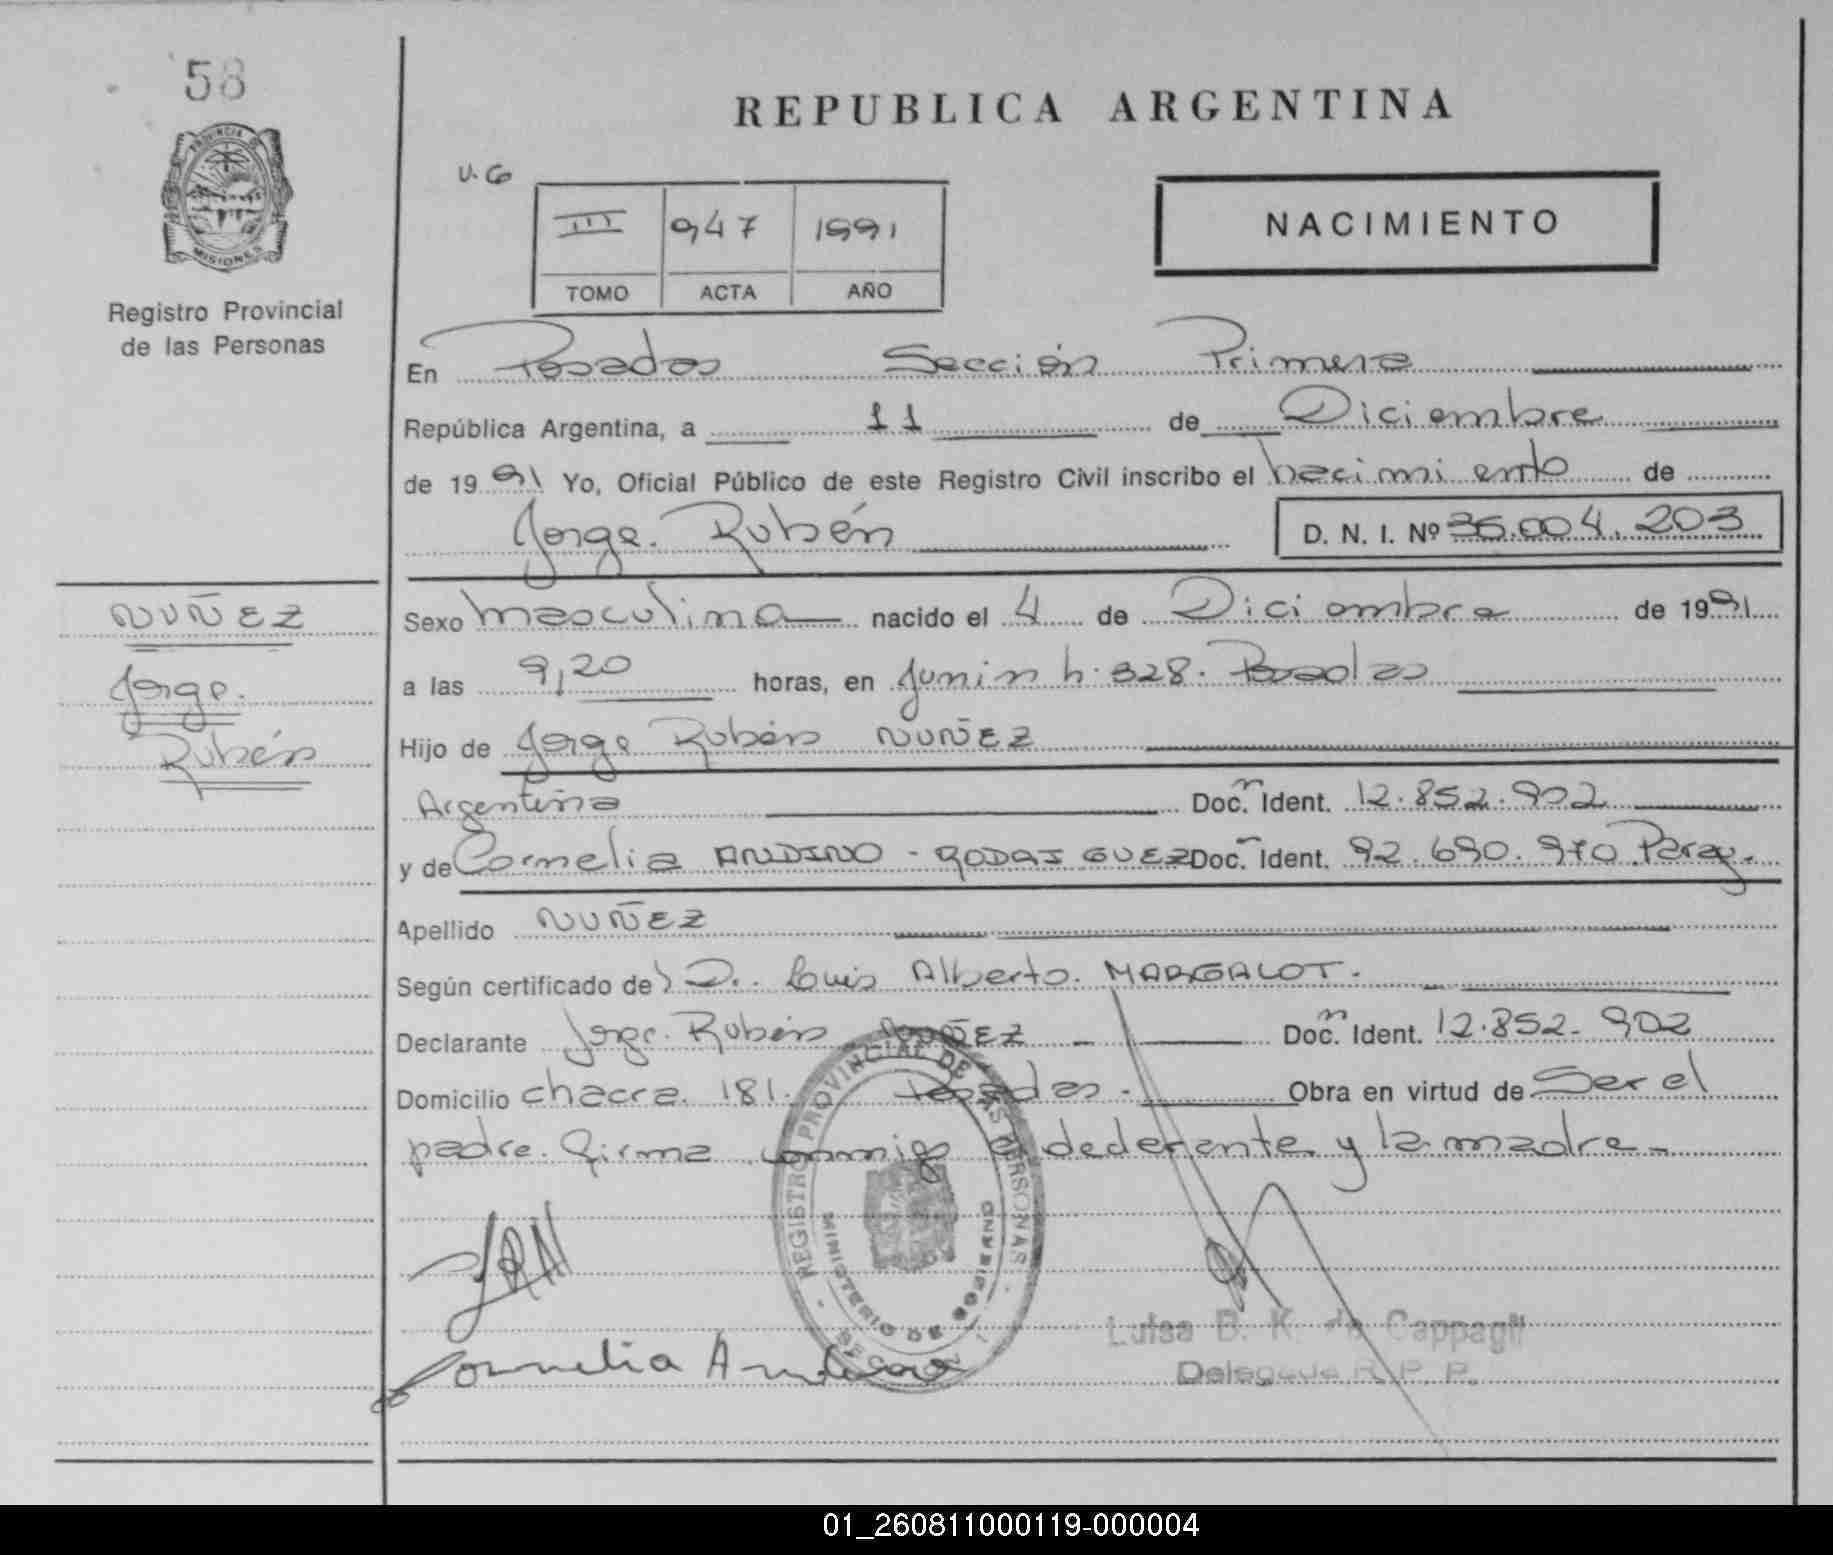 58
PROVINCIA DE
MISIONES
Registro Provincial
de las Personas
REPUBLICA ARGENTINA
U. G
III 947 1991
TOMO ACTA AÑO
NACIMIENTO
En Posadas Sección Primera
República Argentina, a 11 de Diciembre
de 1991 Yo, Oficial Público de este Registro Civil inscribo el nacimiento de
Jorge Rubén
D. N. I. Nº 36.004.203
NUÑEZ
Jorge
Rubén
Sexo masculino nacido el 4 de Diciembre de 1991
a las 9,20 horas, en Junin n. 328. Posadas
Hijo de Jorge Rubén NUÑEZ
Argentina Doc. Ident. 12.852.902
y de Cornelia ANDINO - Doc. Ident. 92.690.970 Parag.
Apellido NUÑEZ
Según certificado de D. Luis Alberto MARGALOT.
Declarante Jorge Rubén NUÑEZ Doc. Ident. 12.852.902
Domicilio chacra 181. Posadas - Obra en virtud de Ser el
padre. Firma conmigo el declarante y la madre -
REGISTRO PROVINCIAL DE LAS PERSONAS
MINISTERIO DE GOBIERNO
SECCION 1
JRN
Cornelia Andino
Luisa B. K. de Cappagli
Delegada R. P. P.
01_260811000119-000004